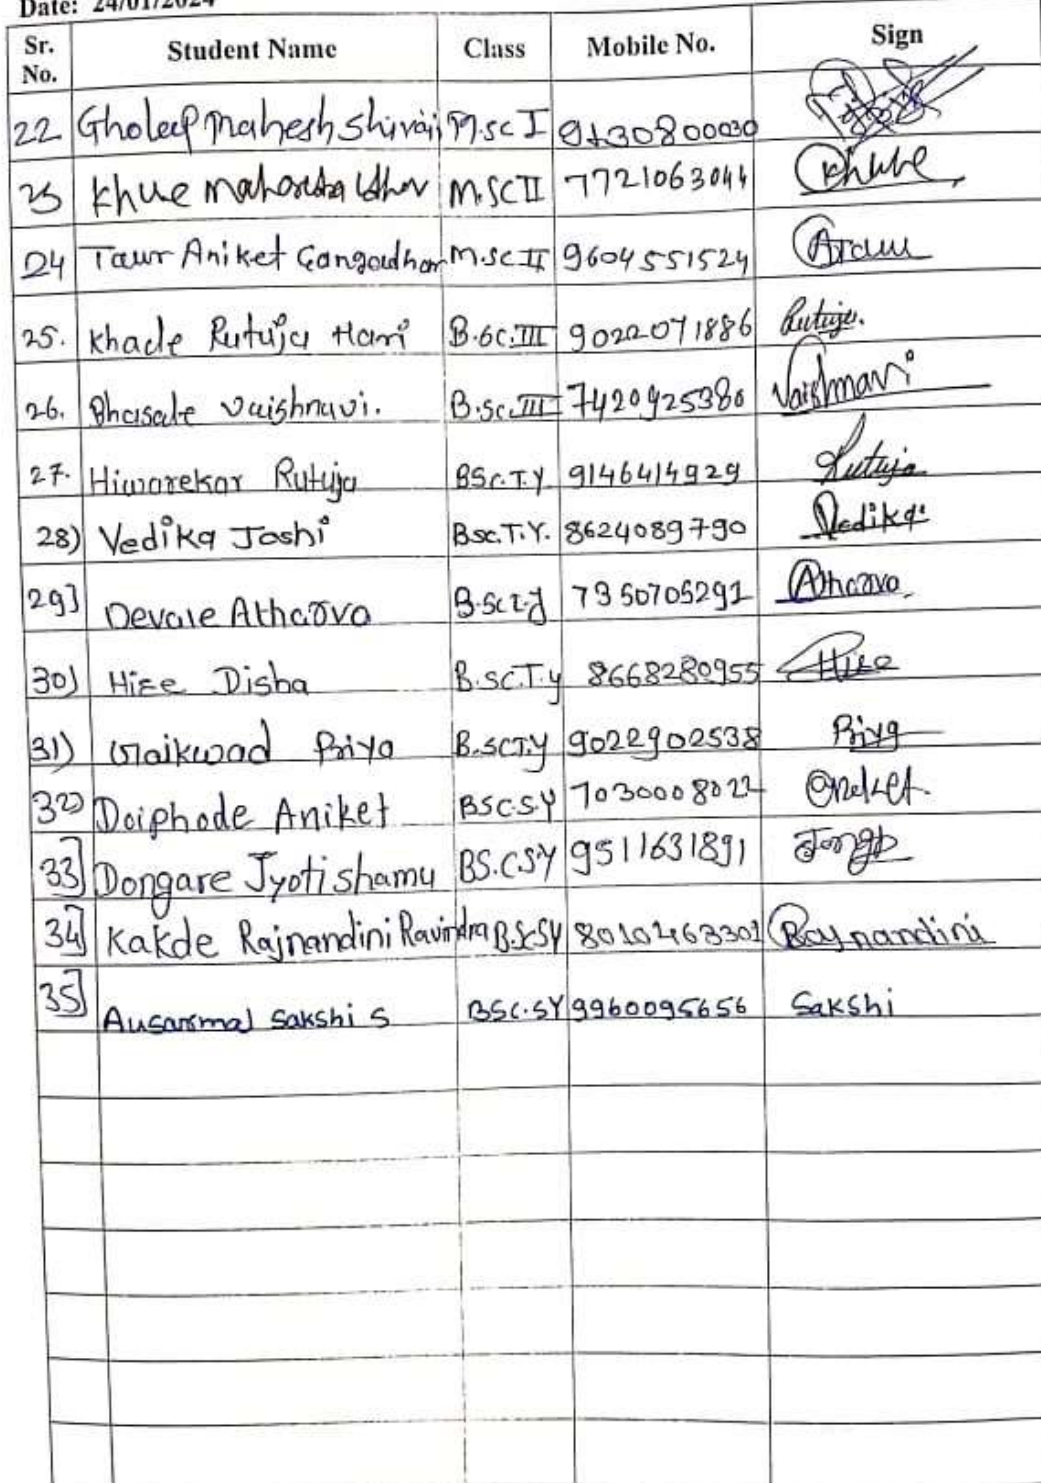 Date: 24/01/2024
Sr. No. Student Name Class Mobile No. Sign
22 Gholap Mahesh Shivaji M.sc I 9130800030
23 Khue M.SC II 7721063044 Khue
24 Taur Aniket Gangadhar M.sc II 9604551524 ATaur
25. Khade Rutuja Hari B.sc.III 9022071886 Rutuja.
26. Bhasale Vaishnavi. B.sc.III 7420925380 Vaishnavi
27. Hiwarekar Rutuja BSc.T.Y 9146414929 Rutuja
28) Vedika Joshi Bsc.T.Y. 8624089790 Vedika
29] Devale Atharva B.sc.T.y 7350705291 Atharva
30) Hise Disha B.SC.T.y 8668280955 Hise
31) Gaikwad Priya B.SCT.Y 9022902538 Priya
32) Doiphode Aniket BSC.S.Y 7030008022 Aniket
33] Dongare Jyoti shamu BS.C.SY 9511631891
34] Kakde Rajnandini Ravindra B.Sc.SY 8010463301 Rajnandini
35] Ausarmal Sakshi S BSC.SY 9960095656 Sakshi